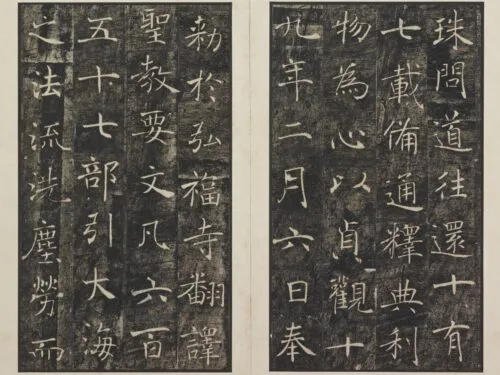 珠問道往還十有
七載備通釋典利
物為心以貞觀十
九年二月六日奉
勅於弘福寺翻譯
聖教要文凡六百
五十七部引大海
之法流洗塵勞而